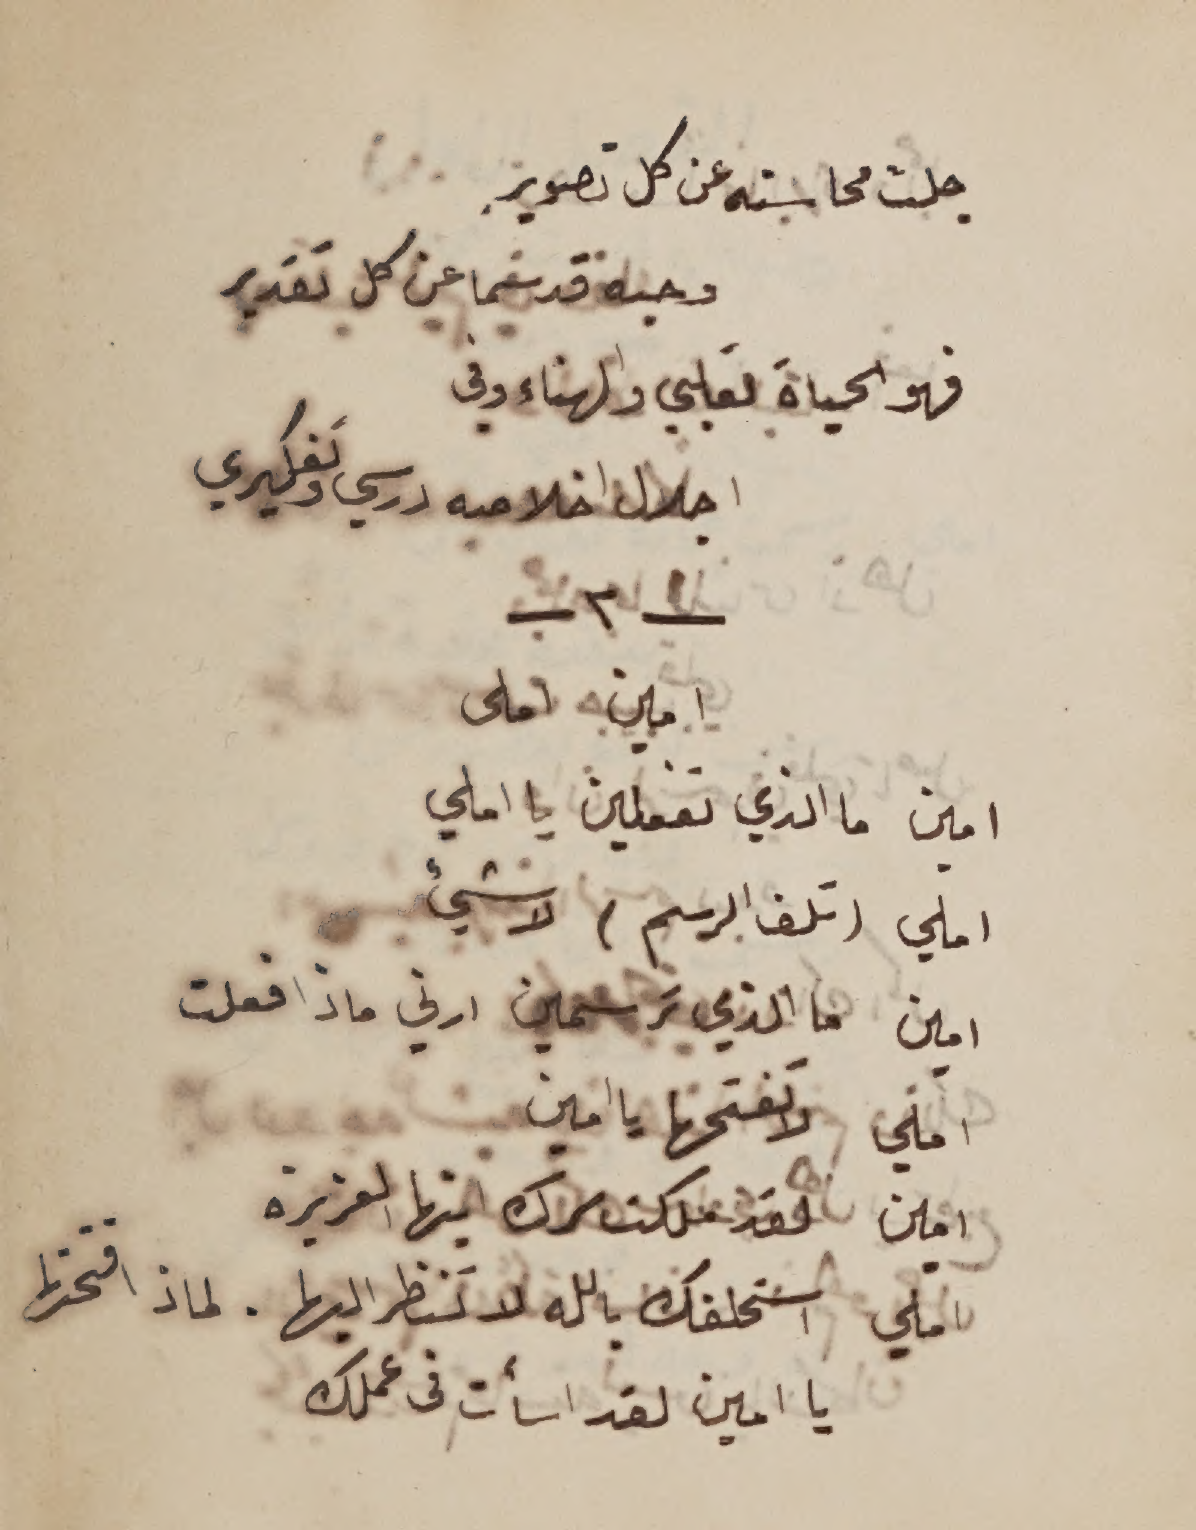 جلت محاسنه عن كل تصوير
وحبه قد سما عن كل تقدير
فهو الحياة لقلبي والهناء وفى
اجلال اخلاصه درسي وتفكيري
ـ ٣ ـ
امين املى
امين ما الذي تفعلين يا املي
املي (تلف الرسم) لا شيئ
امين ما الذي ترسمين ارني ماذا فعلت
املي لا تفتحها يا امين
امين لقد ملكت سرك ايتها العزيزة
املي استحلفك بالله لا تنظر اليها . لماذ افتحتها
يا امين لقد اسأت فى عملك